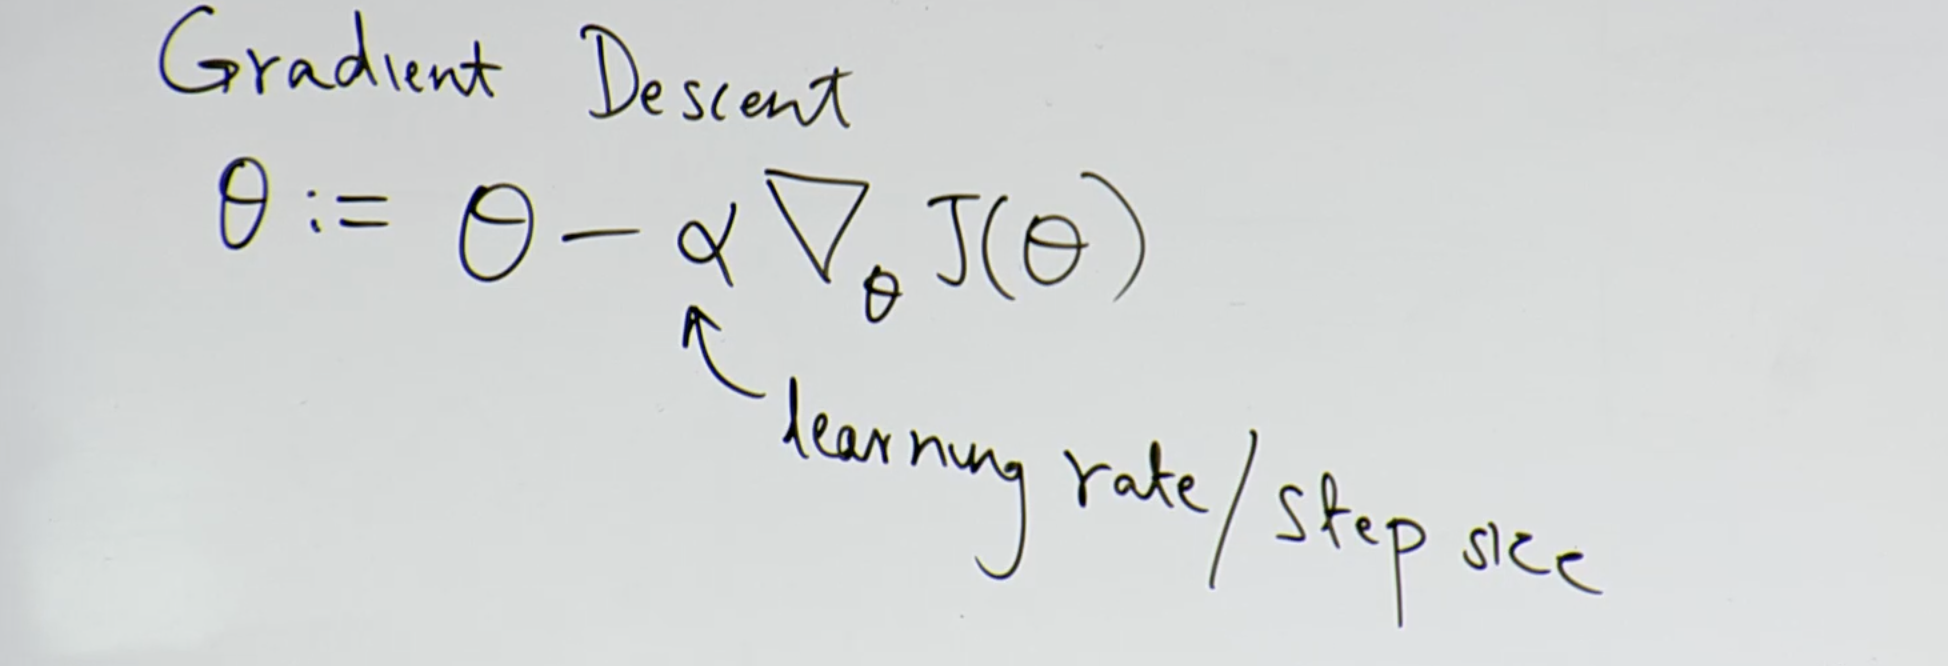 Gradient Descent
θ := θ - α ∇_θ J(θ)
learning rate/step size